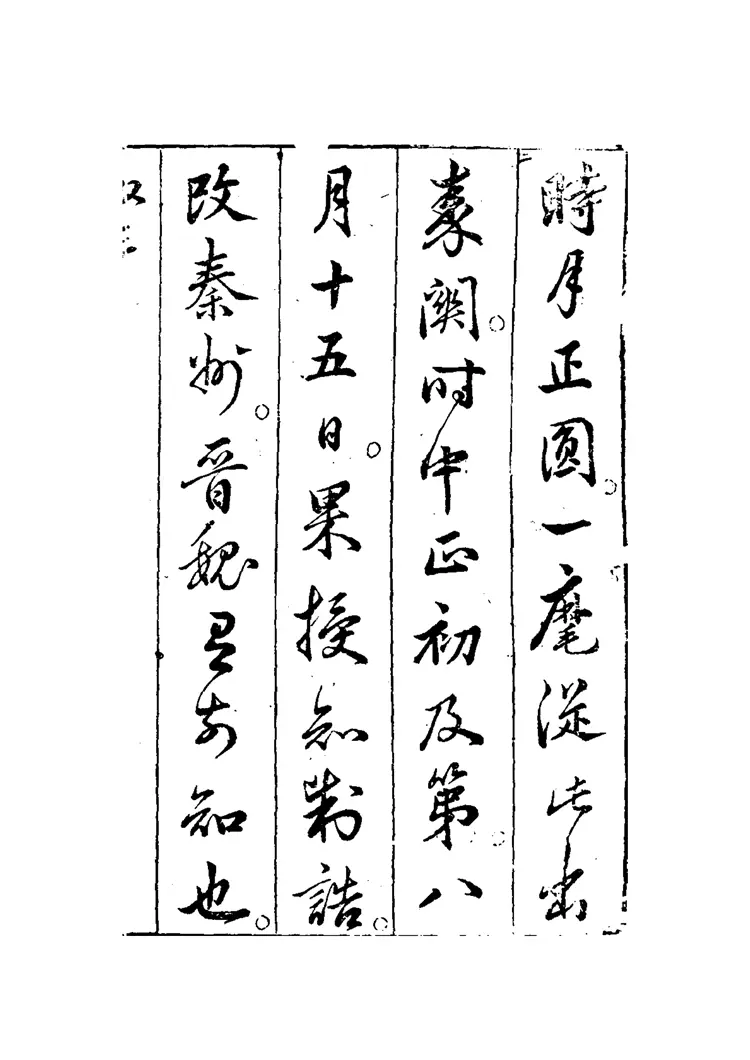 時月正圓。一麾從此出
秦關。时中正初及第。八
月十五日。果授知制誥。
改秦州。晉魏知也。